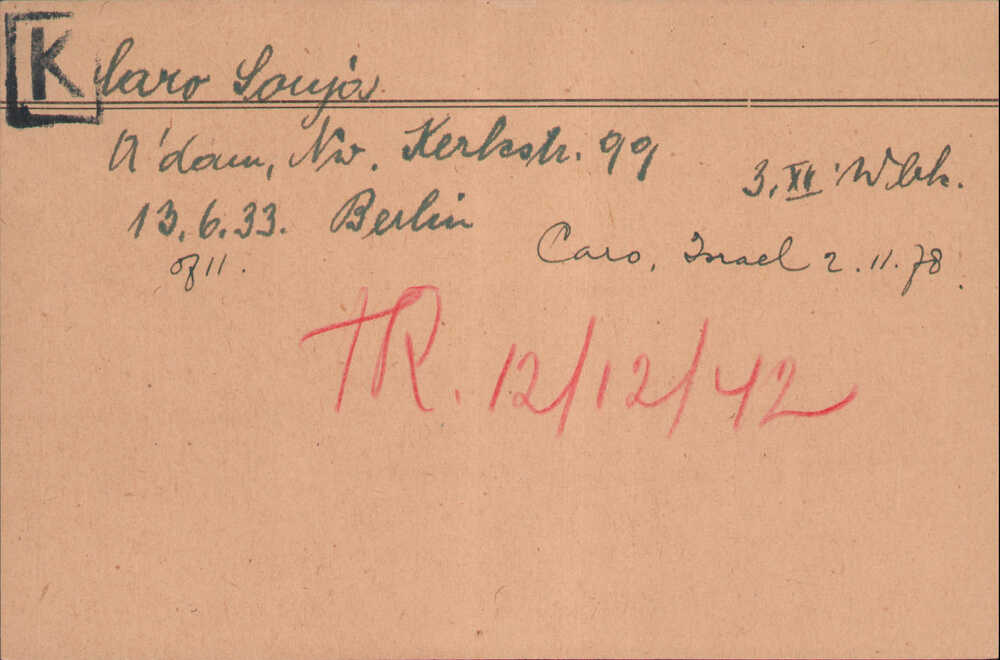 K
Claro Sonja
A'dam, Nw. Kerkstr. 99
3.XII Wbk.
13.6.33. Berlin
Caro, Israel 2.11.78.
TR. 12/12/42